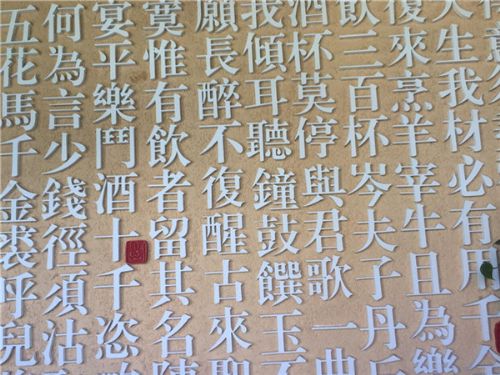 天生我材必有用千
復來烹羊宰牛且為樂
飲三百杯岑夫子丹丘
酒杯莫停與君歌一曲
我傾耳聽鐘鼓饌玉不
願長醉不復醒古來聖
寞惟有飲者留其名陳
宴平樂鬥酒十千恣
何為言少錢徑須沽
五花馬千金裘呼兒